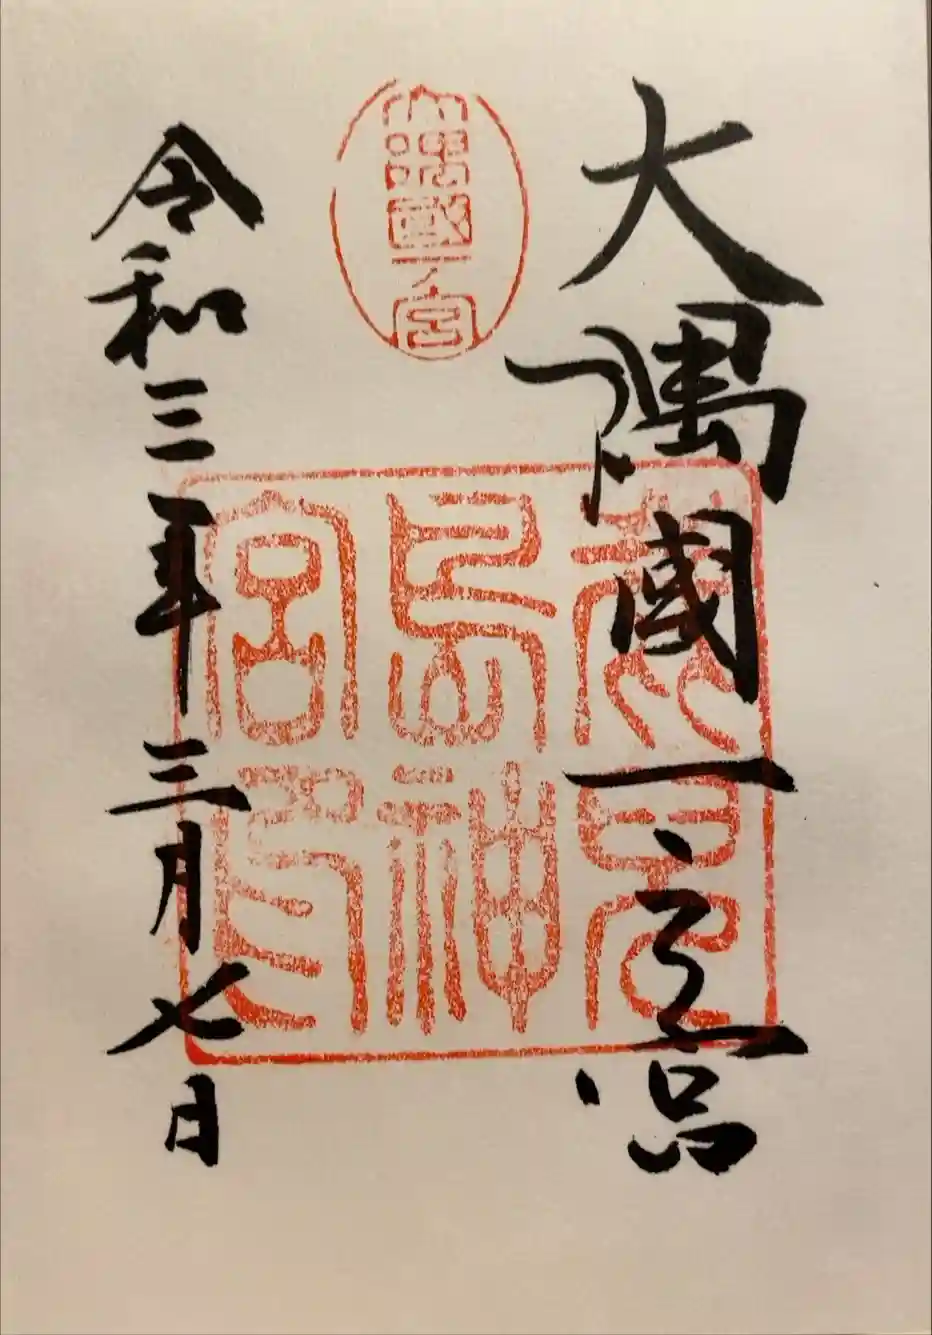 大隅國一之宮
大隅國一ノ宮
鹿兒島神宮印
令和三年三月七日